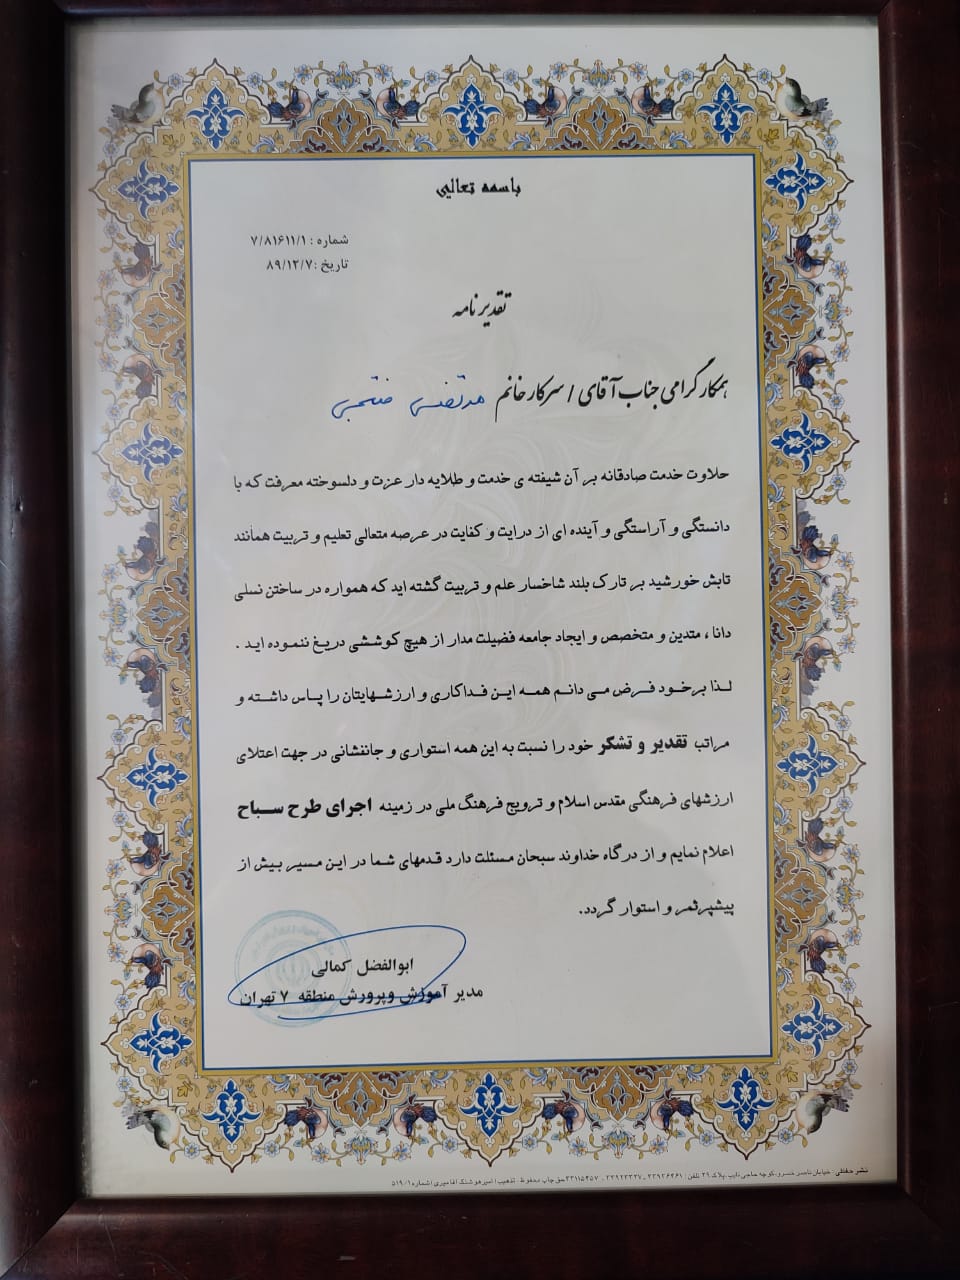 باسمه تعالی
شماره : ۷/۸۱۶۱۱/۱
تاریخ :۸۹/۱۲/۷
تقدیرنامه
همکار گرامی جناب آقای / سرکار خانم مرتضی
حلاوت خدمت صادقانه بر آن شیفته ی خدمت و طلایه دار عزت و دلسوخته معرفت که با
دانستگی و آراستگی و آینده ای از درایت و کفایت در عرصه متعالی تعلیم و تربیت همانند
تابش خورشید بر تارک بلند شاخسار علم و تربیت گشته اید که همواره در ساختن نسلی
دانا ، متدین و متخصص و ایجاد جامعه فضیلت مدار از هیچ کوششی دریغ ننموده اید .
لذا برخود فرض می دانم همه این فداکاری و ارزشهایتان را پاس داشته و
مراتب تقدیر و تشکر خود را نسبت به این همه استواری و جانفشانی در جهت اعتلای
ارزشهای فرهنگی مقدس اسلام و ترویج فرهنگ ملی در زمینه اجرای طرح سباح
اعلام نمایم و از درگاه خداوند سبحان مسئلت دارد قدمهای شما در این مسیر بیش از
پیشپرثمر و استوار گردد.
ابوالفضل کمالی
مدیر آموزش وپرورش منطقه ۷ تهران
نشر حفاظی : خیابان ناصر خسرو،کوچه حاجی نایب ،پلاک ۲۹ تلفن : ۳۳۹۲۶۴۶۱ ـ ۳۳۹۲۳۳۳۷ ـ ۳۳۱۱۵۴۵۷ حق چاپ محفوظ - تذهیب : امیرهوشنگ آقامیری (شماره ۵۱۹/۱